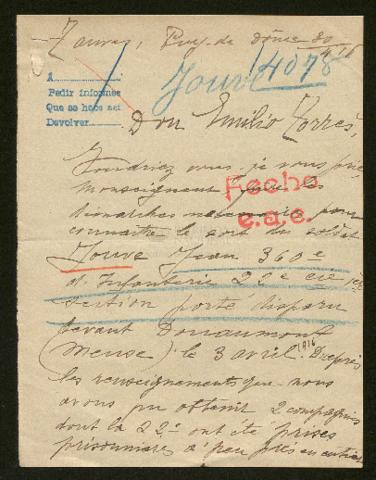 Zauves, Puy-de dôme 30/4/16
Jouve 14078
A
Pedir informes
Que se hace así
Devolver
Don Emilio Torres,
Voudriez vous, je vous prie,
Monseigneur faire les
Fecha
démarches nécessaires pour
e.a.e.
connaître le sort du soldat
Jouve Jean 360e
d'Infanterie 22e cie 1ère
section porté disparu
devant Douaumont
(Meuse) le 3 avril 1916. D'après
les renseignements que nous
avons pu obtenir 2 compagnies
dont la 22e ont été prises
prisonnières à peu près en entier